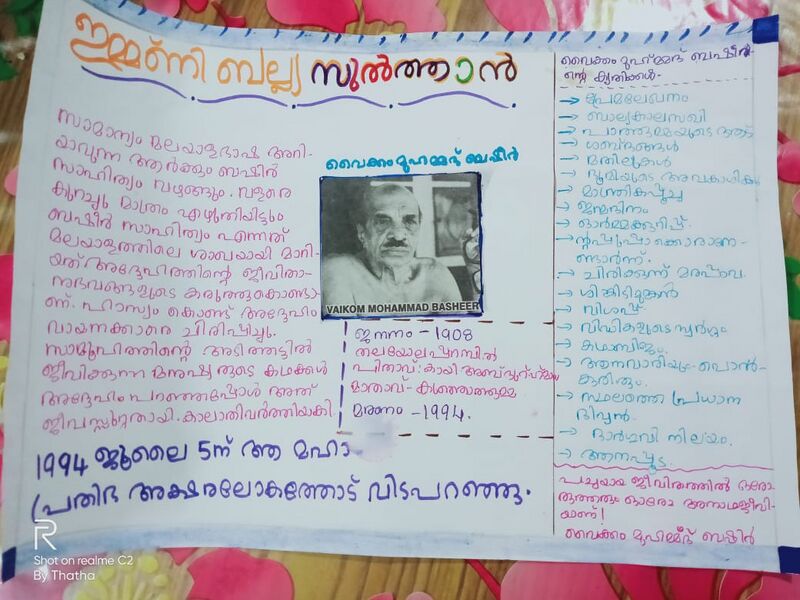 ഇമ്മിണി ബല്യ സുൽത്താൻ
സാമാന്യം മലയാളഭാഷ അറി-
യാവുന്ന ആർക്കും ബഷീർ
സാഹിത്യം വഴങ്ങും. വളരെ
കുറച്ചു മാത്രം എഴുതിയിട്ടും
ബഷീർ സാഹിത്യം എന്നത്
മലയാളത്തിലെ ശാഖയായി മാറി-
യത് അദ്ദേഹത്തിന്റെ ജീവിതാ-
നുഭവങ്ങളുടെ കരുത്തുകൊണ്ടാ-
ണ്. ഹാസ്യം കൊണ്ട് അദ്ദേഹം
വായനക്കാരെ ചിരിപ്പിച്ചു.
സാമൂഹത്തിന്റെ അടിത്തട്ടിൽ
ജീവിക്കുന്ന മനുഷ്യരുടെ കഥകൾ
അദ്ദേഹം പറഞ്ഞപ്പോൾ അത്
ജീവസ്സുറ്റതായി. കാലാതിവർത്തിയാക്കി.
1994 ജൂലൈ 5ന് ആ മഹാ
പ്രതിഭ അക്ഷരലോകത്തോട് വിടപറഞ്ഞു.
വൈക്കം മുഹമ്മദ് ബഷീർ
VAIKOM MOHAMMAD BASHEER
ജനനം - 1908
തലയോലപ്പറമ്പിൽ
പിതാവ്: കായി അബ്ദുറഹ്മാൻ
മാതാവ്- കുഞ്ഞത്തുമ്മ
മരണം - 1994.
വൈക്കം മുഹമ്മദ് ബഷീറി-
ന്റെ കൃതികൾ.
→ പ്രേമലേഖനം
→ ബാല്യകാലസഖി
→ പാത്തുമ്മയുടെ ആട്
→ ശബ്ദങ്ങൾ
→ മതിലുകൾ
→ ഭൂമിയുടെ അവകാശികൾ
→ മാന്ത്രികപ്പൂച്ച
→ ജന്മദിനം
→ ഓർമ്മക്കുറിപ്പ്
→ ന്റുപ്പുപ്പാക്കൊരാനേ-
ണ്ടാർന്ന്.
→ ചിരിക്കുന്ന മരപ്പാവ.
→ ശിങ്കിടിമുങ്കൻ
→ വിശപ്പ്
→ വിഡ്ഢികളുടെ സ്വർഗ്ഗം
→ കഥാബീജം.
→ ആനവാരിയും പൊൻ-
കുരിശും.
→ സ്ഥലത്തെ പ്രധാന
ദിവ്യൻ.
→ ഭാർഗവി നിലയം.
→ ആനപ്പൂട
പച്ചയായ ജീവിതത്തിൽ ഓരോ
രുത്തരും ഓരോ അനാഥജീവി-
യാണ്!
വൈക്കം മുഹമ്മദ് ബഷീർ
R
Shot on realme C2
By Thatha